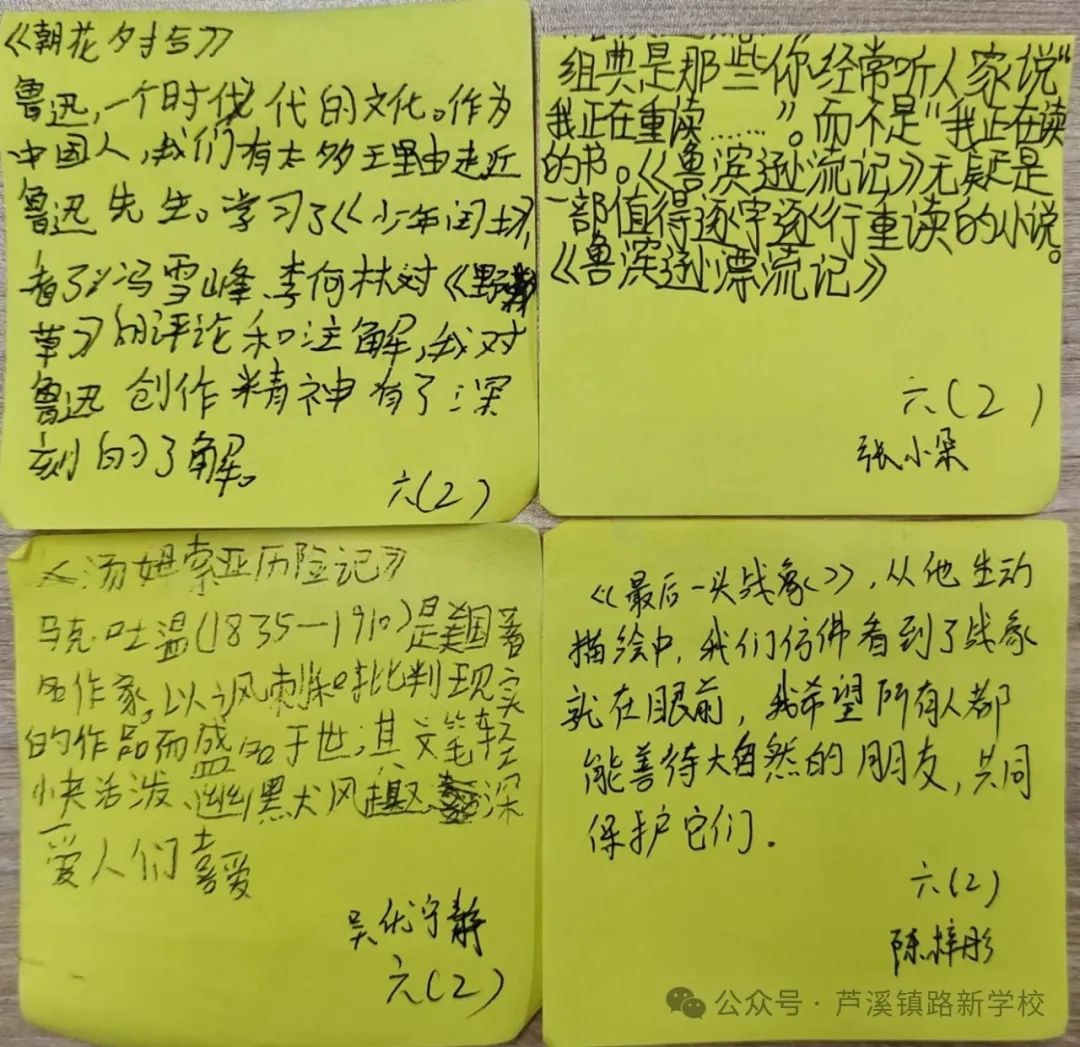 《朝花夕拾》
鲁迅,一个时代 代的文化。作为
中国人,我们有太多理由走近
鲁迅先生。学习了《少年闰土》,
看了冯雪峰、李何林对《野
草》的评论和注解,我对
鲁迅创作精神有了深
刻的了解。
六(2)
组典是那些你经常听人家说“
我正在重读……”。而不是“我正在读
的书。《鲁滨逊流记》无疑是
一部值得逐字逐行重读的小说。
《鲁滨逊漂流记》
六(2)
张小朵
《汤姆索亚历险记》
马克·吐温(1835—1910)是美国著
名作家,以讽刺和批判现实
的作品而盛名于世;其文笔轻
快活泼、幽默风趣 深
受人们喜爱
吴优宁静
六(2)
《最后一头战象》,从他生动
描绘中,我们仿佛看到了战象
就在眼前,我希望所有人都
能善待大自然的朋友,共同
保护它们.
六(2)
陈梓彤
公众号·芦溪镇路新学校